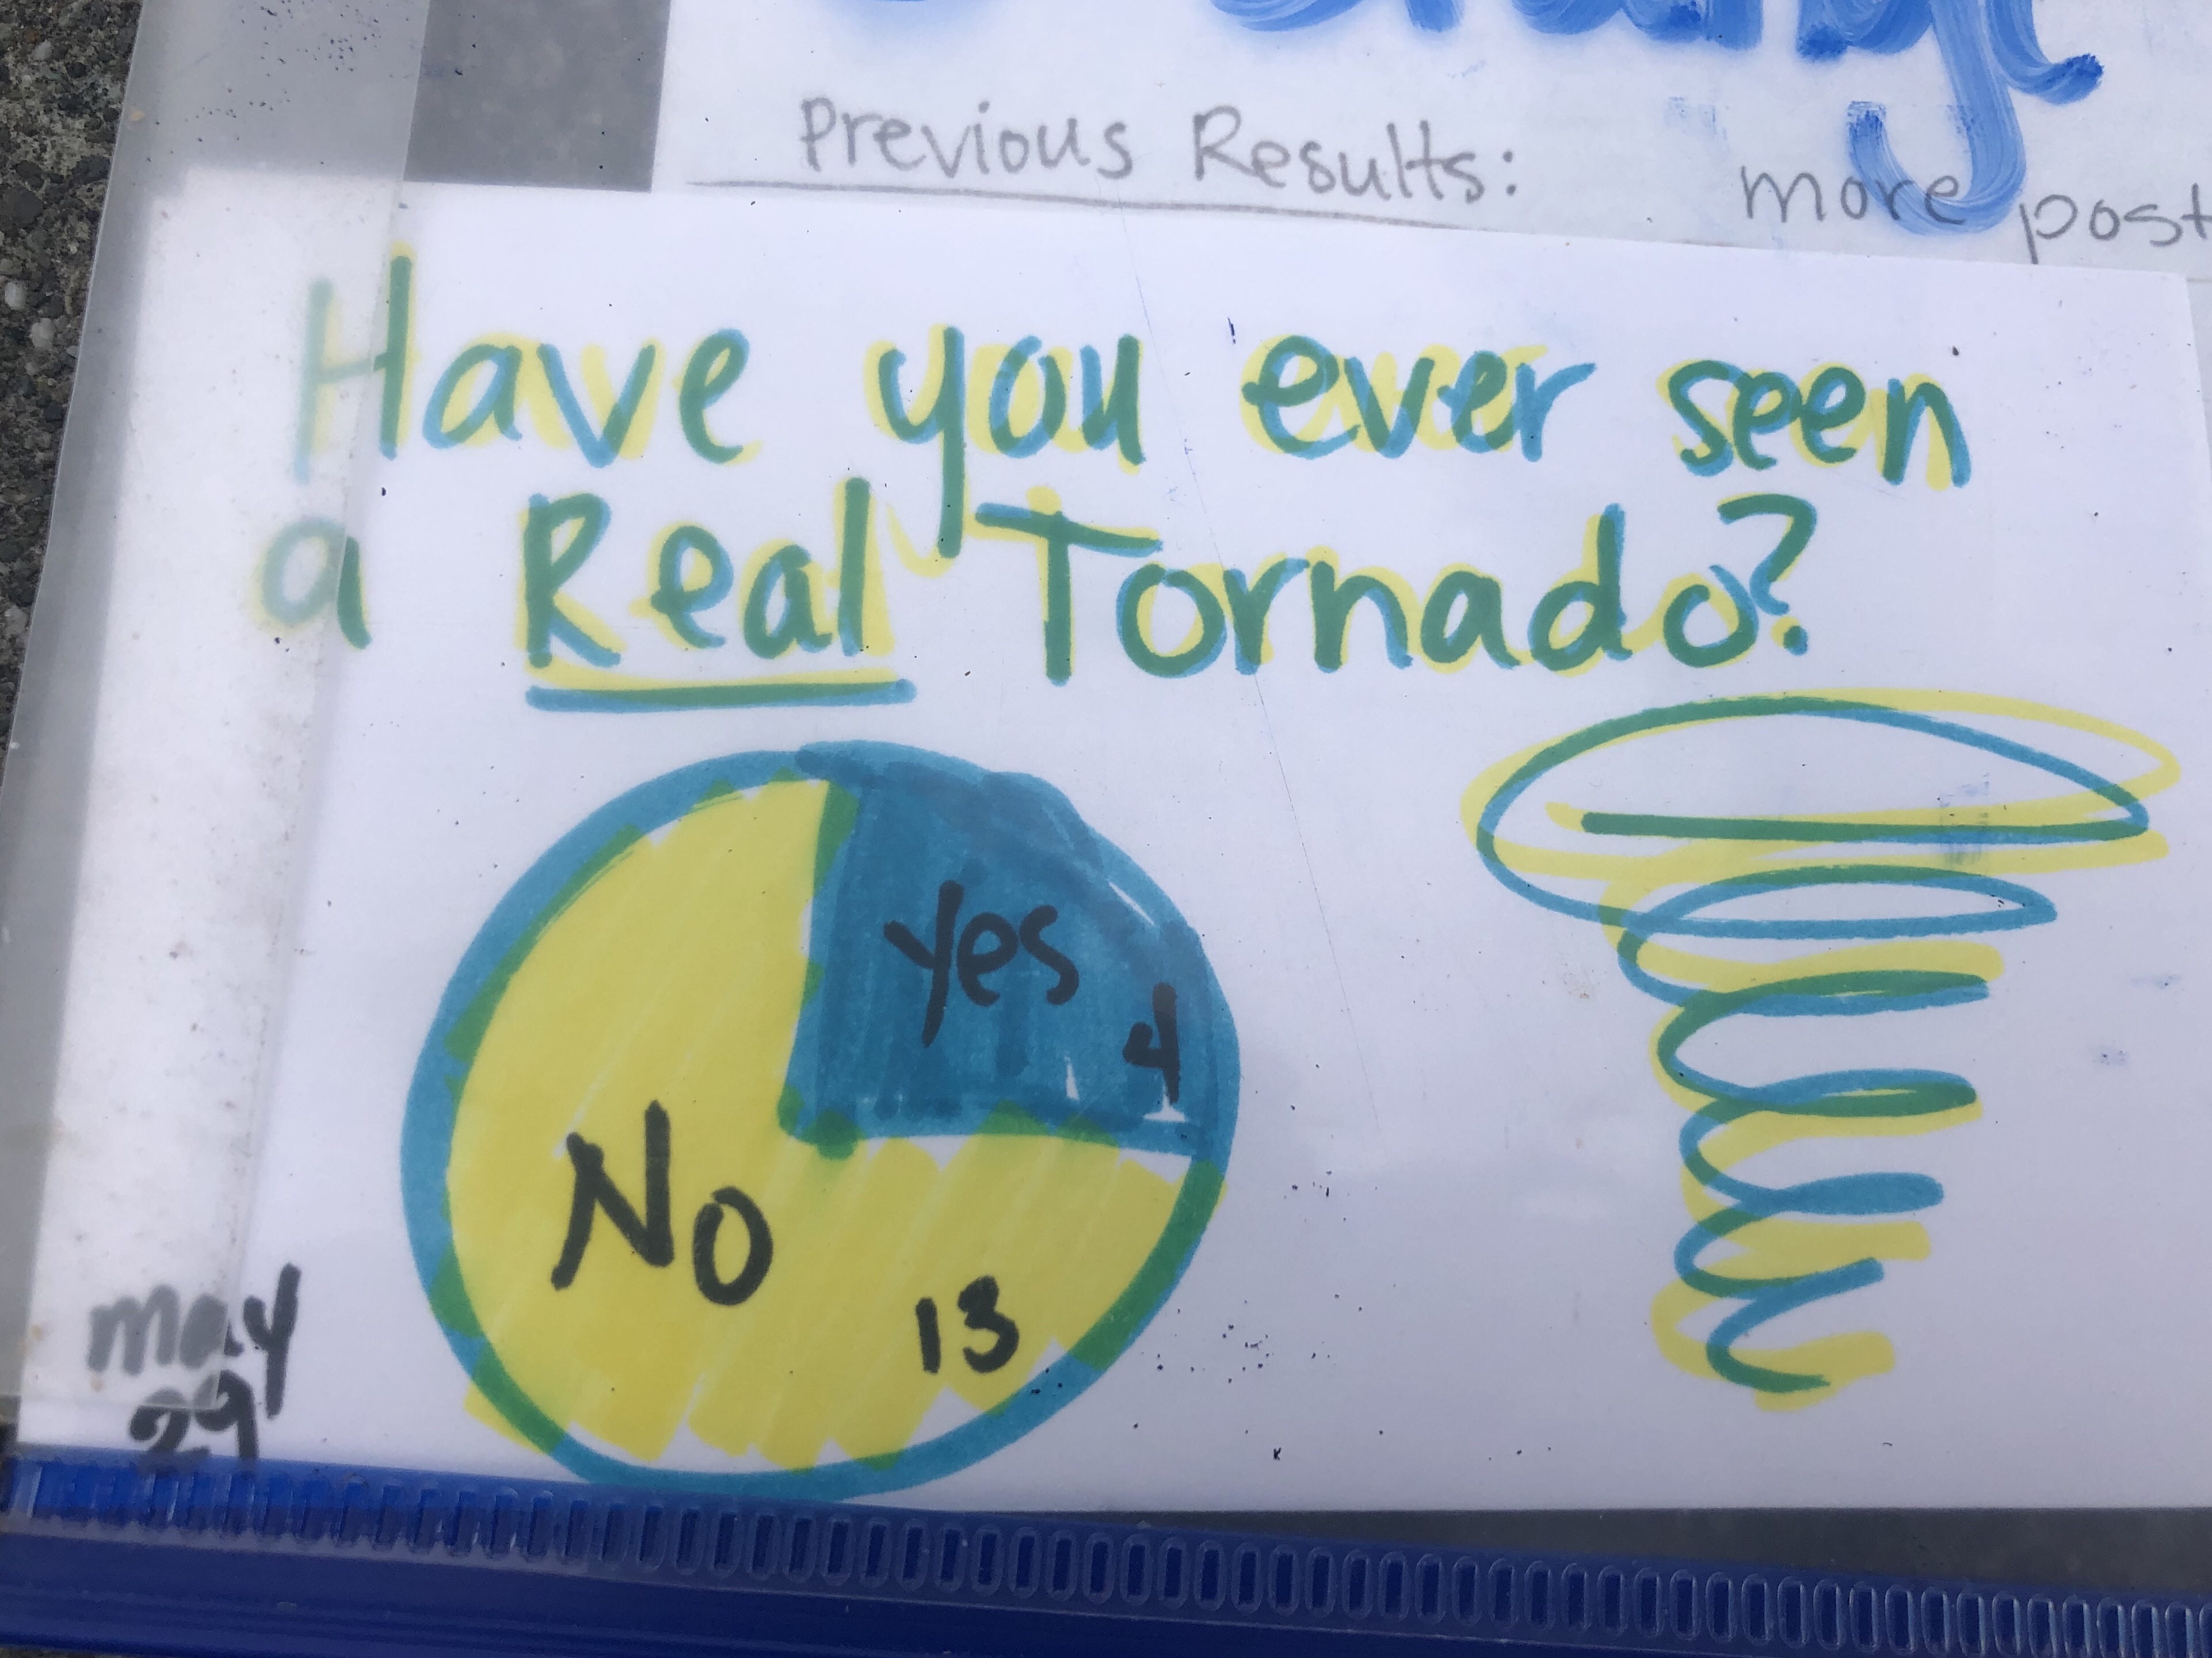 Previous Results:
more post
Have you ever seen
a Real Tornado?
Yes
4
No
13
May
29